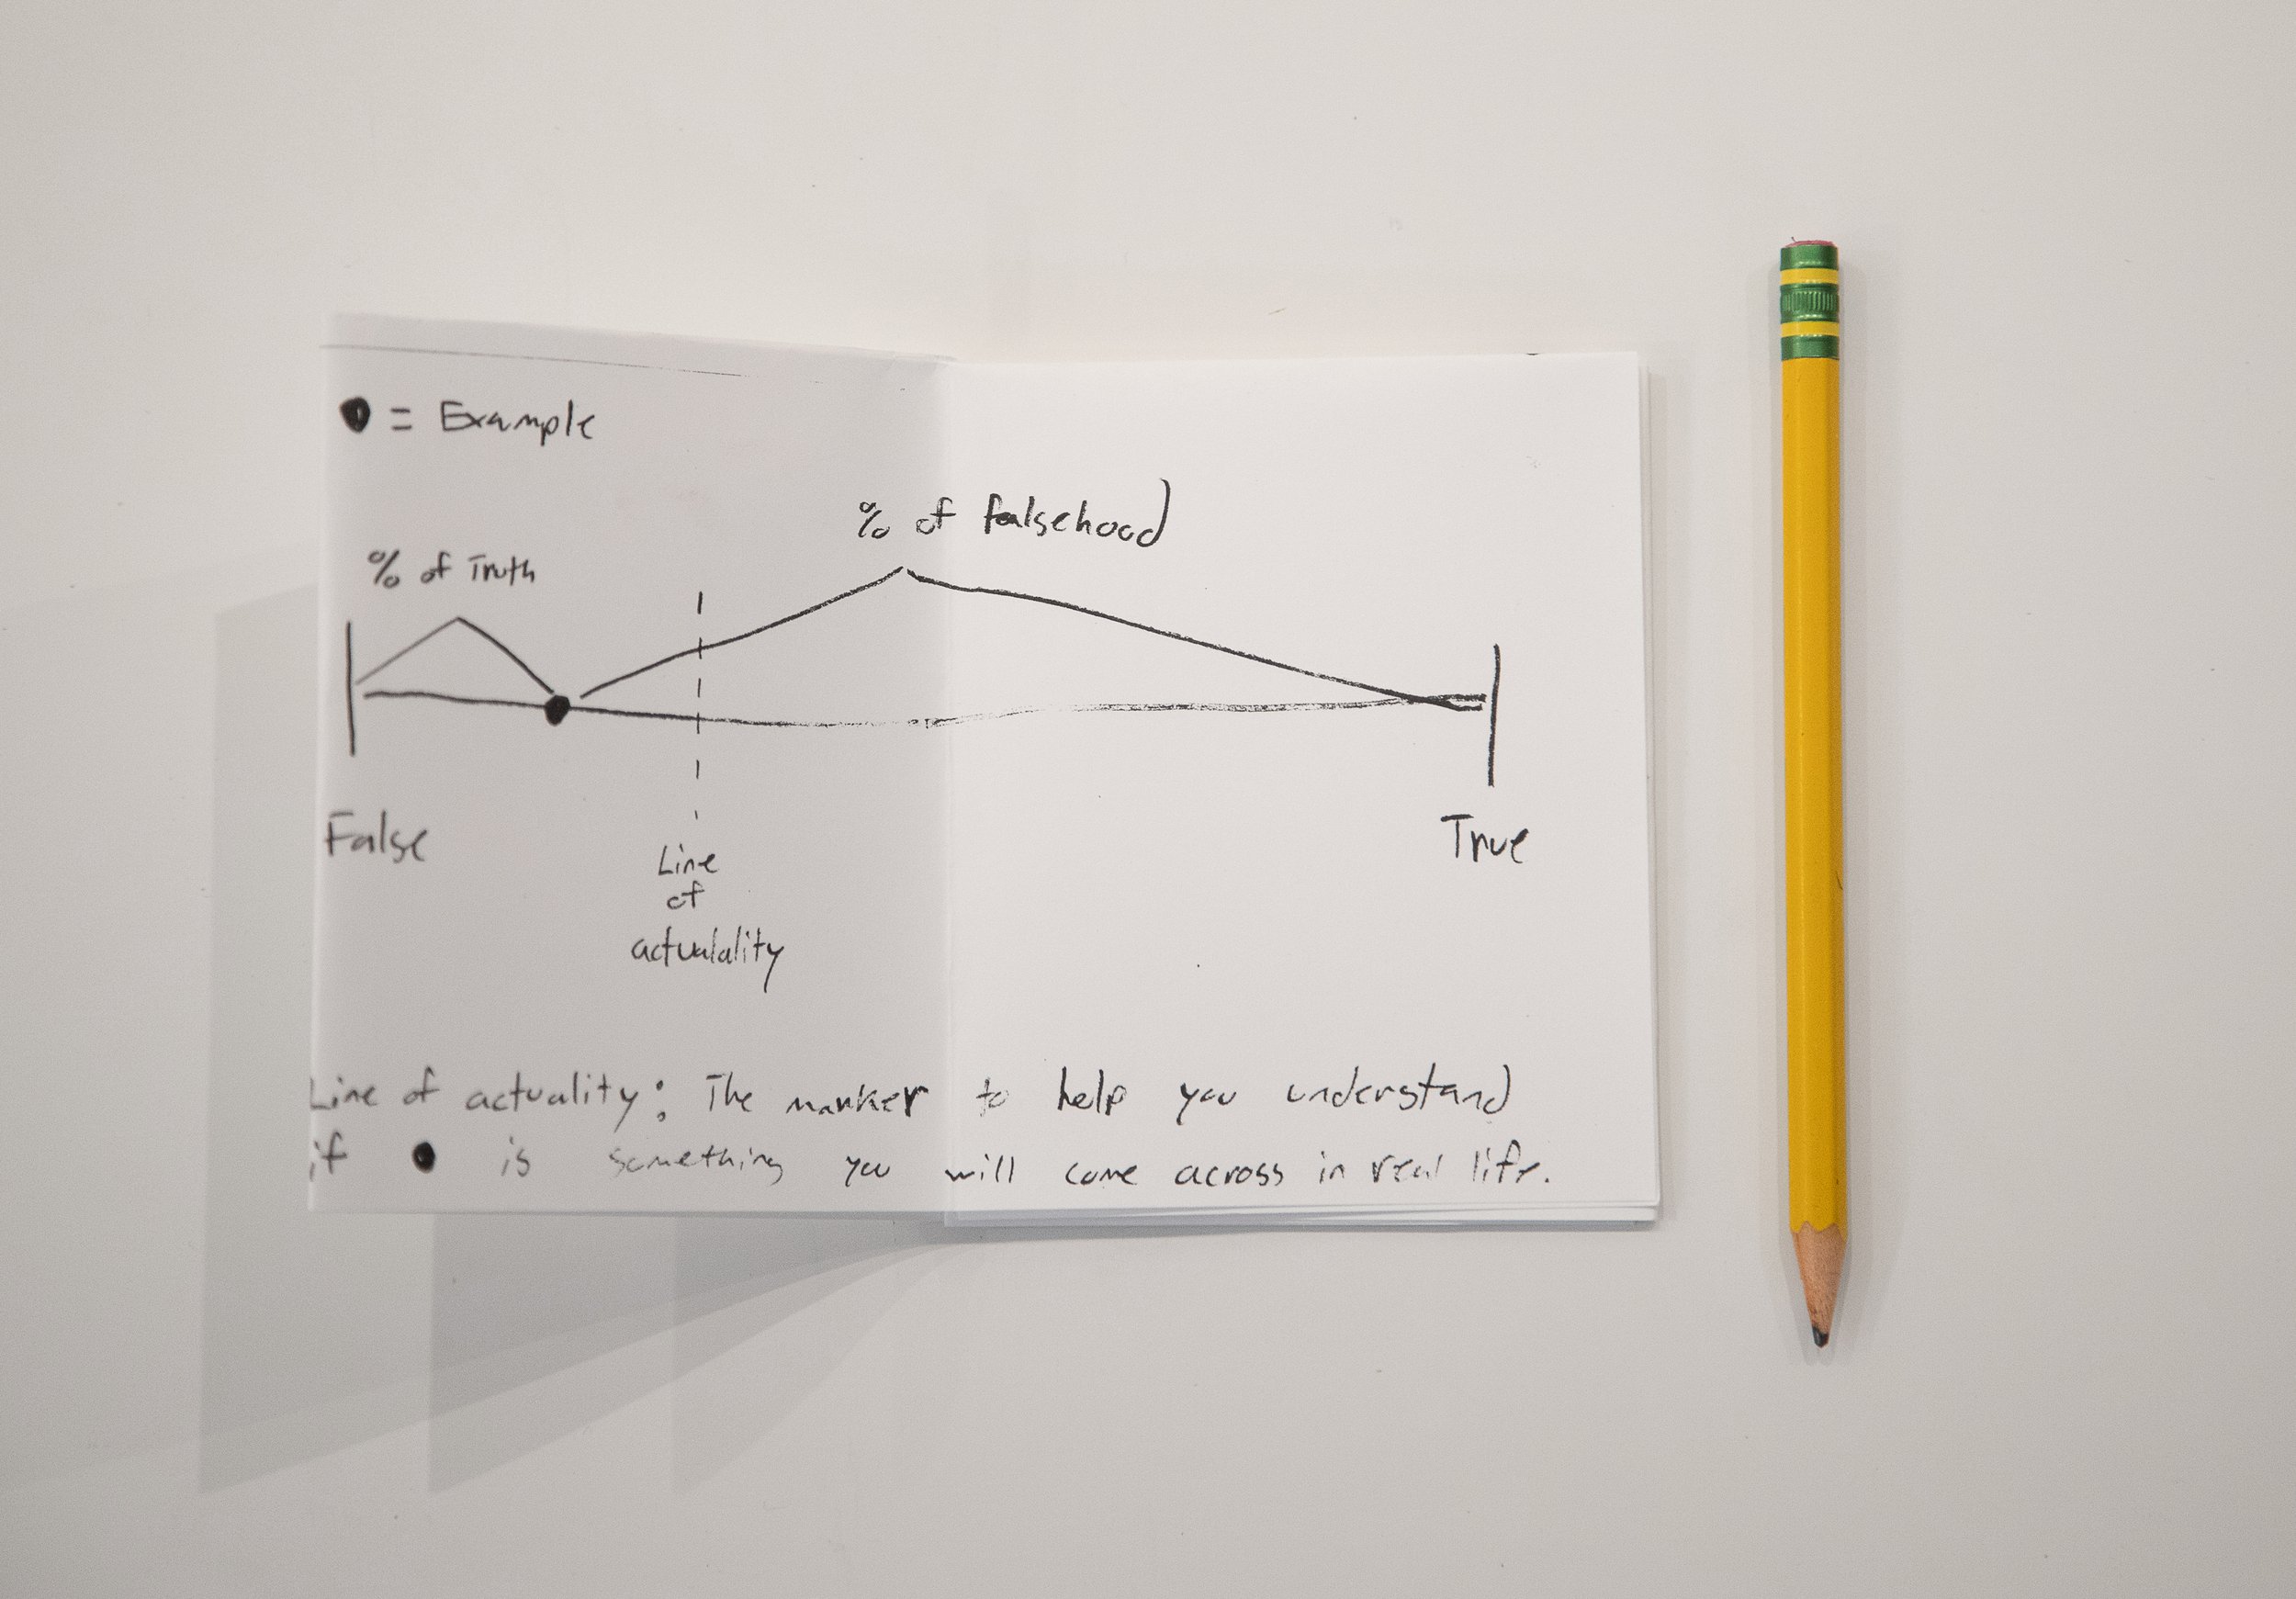 ● = Example
% of falsehood
% of Truth
False
True
Line
of
actualality
Line of actuality: The marker to help you understand
if ● is something you will come across in real life.